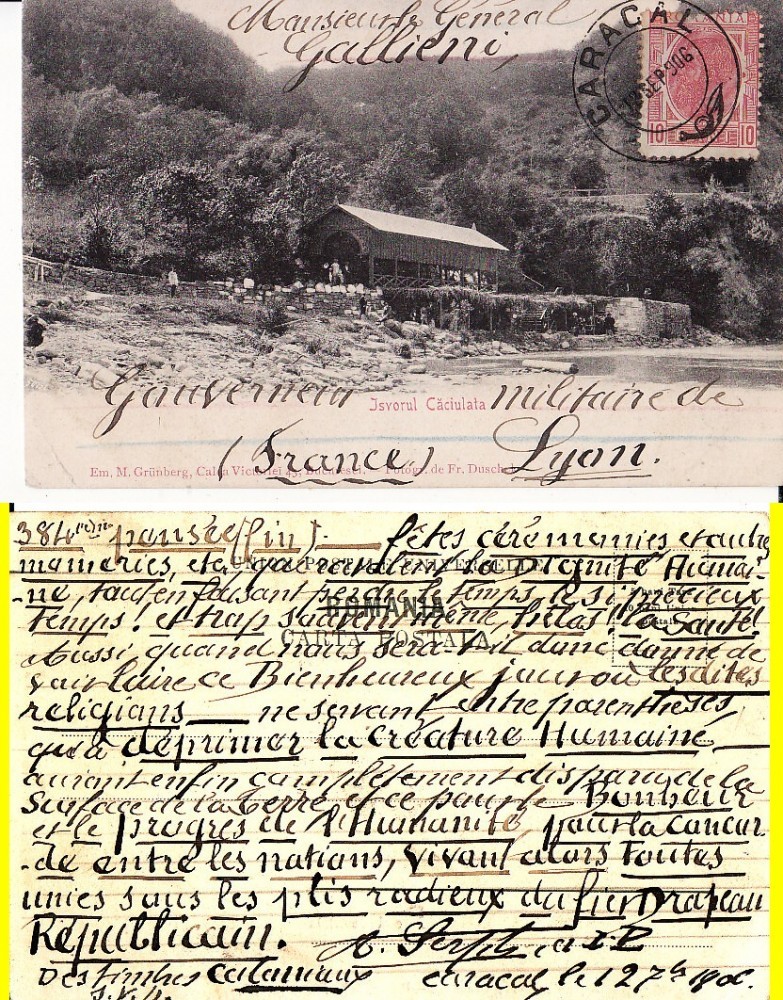 Monsieur le Général
Gallieni,
ROMANIA
CARACAL
SEP 906
10 10
Gouverneur militaire de
Isvorul Căciulata
(France) Lyon.
Em, M. Grünberg, Calea Victoriei 45, Bucuresci. - Fotogr. de Fr. Duschek
384 pensée (fin). fêtes cérémonies et autres
momeries, etc, que ravalent la Dignité Humai-
UNION POSTALE UNIVERSELLE
-ne, tout en faisant perdre le temps, le si précieux
ROMANIA
temps! et trop souvent même, hélas! la Santé!
CARTA POSTALA
Aussi quand nous sera-t-il donc donné de
voir luire ce Bienheureux jour où les dites
religions ne servant, entre parenthèses,
qu'à déprimer la créature Humaine,
auront enfin complètement disparu de la
Surface de la Terre et ce pour le Bonheur
et le progrès de l'Humanité, pour la concor
-de entre les nations, vivant alors toutes
unies sous les plis radieux du fier Drapeau
Républicain.
Des timbres coloniaux Caracal, le 12 7bre 1906.
S.V.P.